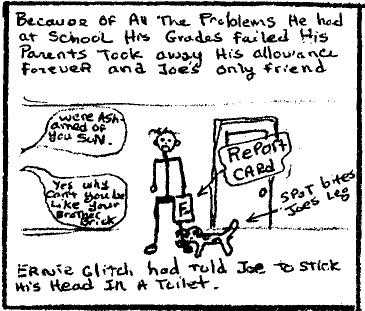 Because of All The Problems He had
at School His Grades failed His
Parents Took away His allowance
forever and Joe's only friend
were Ash-
amed of
you SuN.
Yes why
Can't you be
Like your
Brother
Brick
RePort
CARd
F
SPOT bites
Joes Leg
Ernie Glitch had Told Joe To Stick
His Head In A Toilet.